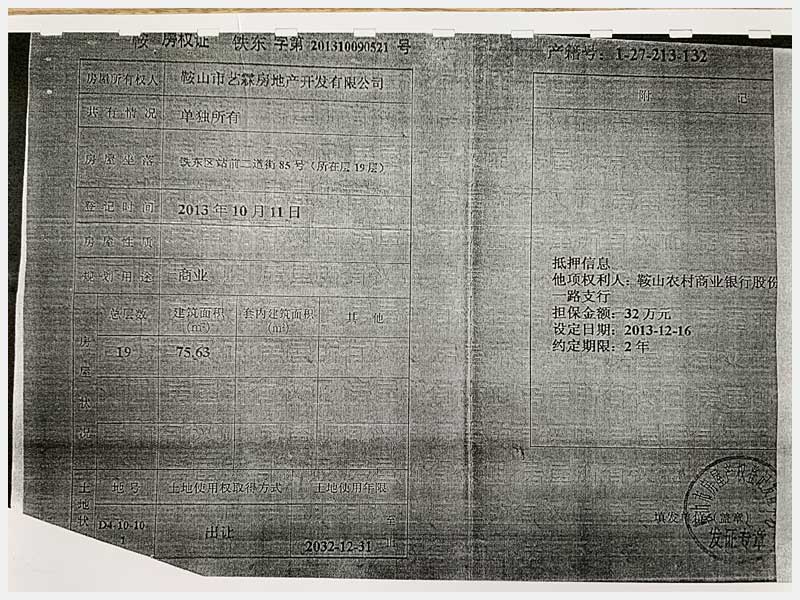 鞍 房权证 铁东 字第 201310090521 号
房屋所有权人 鞍山市艺霖房地产开发有限公司
共有情况 单独所有
房屋坐落 铁东区站前二道街85号(所在层19层)
登记时间 2013年10月11日
房屋性质
规划用途 商业
房屋状况
总层数 建筑面积(m²) 套内建筑面积(m²) 其他
19 75.63
土地状
地号 土地使用权取得方式 土地使用年限
D4-10-10-1 出让 2032-12-31 至 止
产籍号: 1-27-213-132
附 记
抵押信息
他项权利人: 鞍山农村商业银行股份
一路支行
担保金额: 32万元
设定日期: 2013-12-16
约定期限: 2年
填发单位(盖章)
发证专章